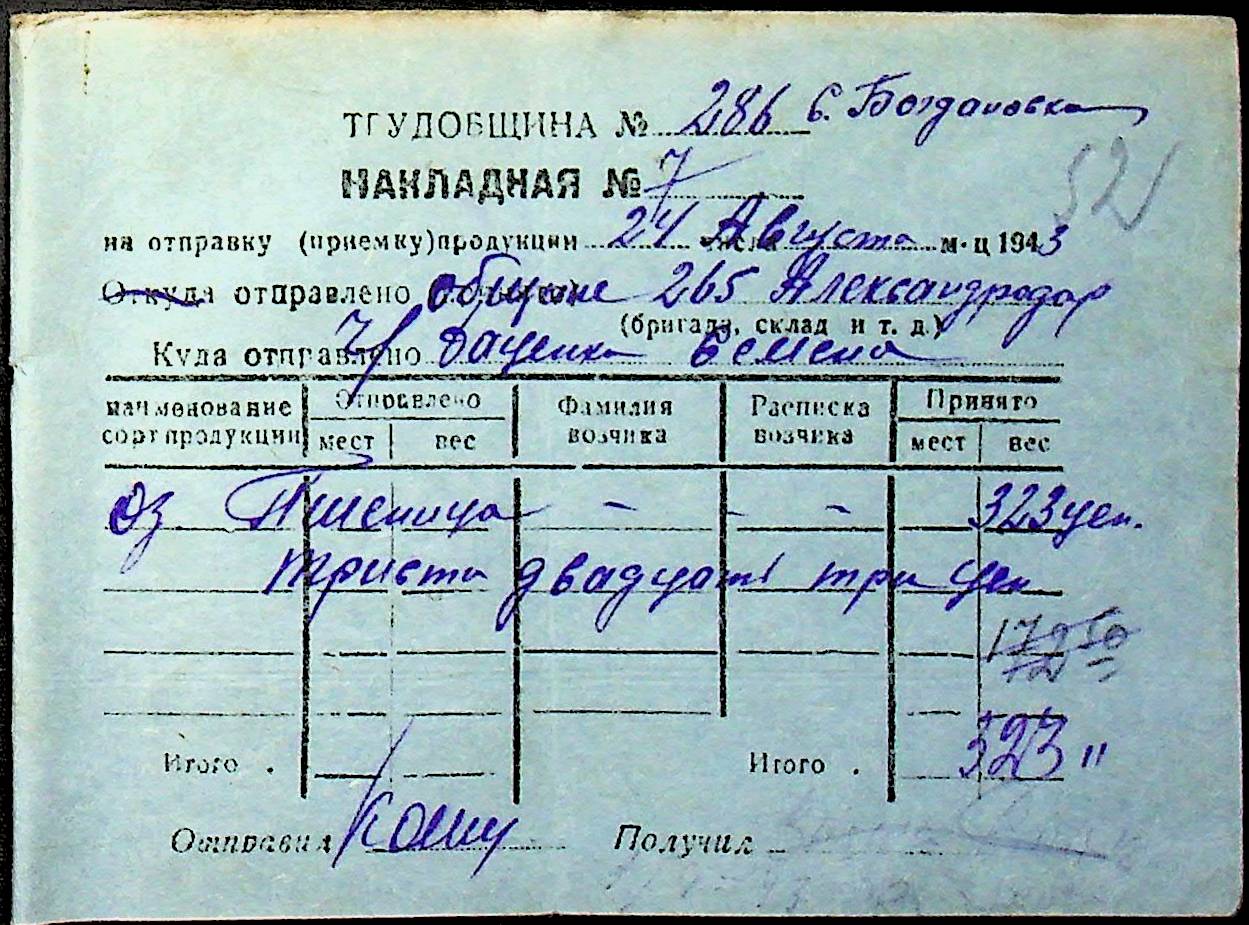 ТРУДОВЩИНА № 286 с. Богдановка
НАКЛАДНАЯ № 7
521
на отправку (приемку) продукции 24 Августа м-ц 1943
Откуда отправлено общине 265 Александродар
(бригада, склад и т. д.)
Куда отправлено ч/ Даценка Семена
наименование сорт продукции Отправлено мест вес Фамилия возчика Расписка возчика Принято мест вес
оз. Пшеница – – – 323 цен.
триста двадцать три цен
172 50
323 "
Итого . Итого .
Отправил Получил